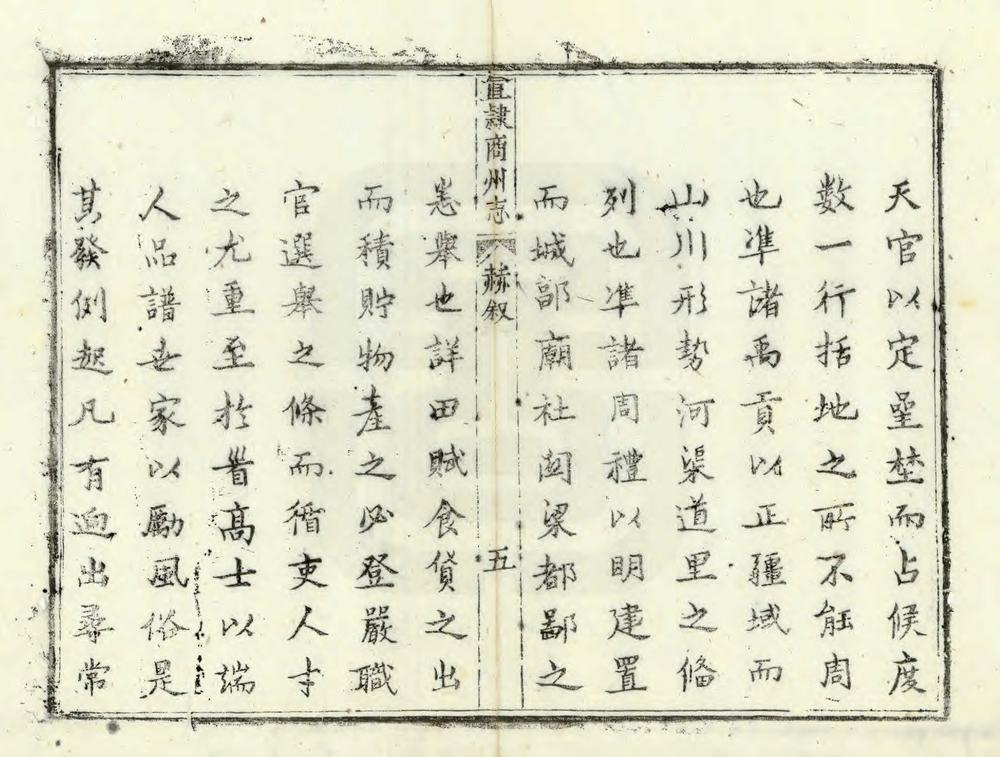 天官以定星埜而占候度
數一行括地之所不能周
也凖諸禹貢以正疆域而
山川形勢河渠道里之備
列也凖諸周禮以明建置
而城郭廟社関梁都鄙之
直隷商州志
赫叙
五
悉舉也詳田賦食貨之出
而積貯物產之必登嚴職
官選舉之條而循吏人才
之尤重至於耆髙士以端
人品譜世家以勵風俗是
其發例起凡有逈出尋常